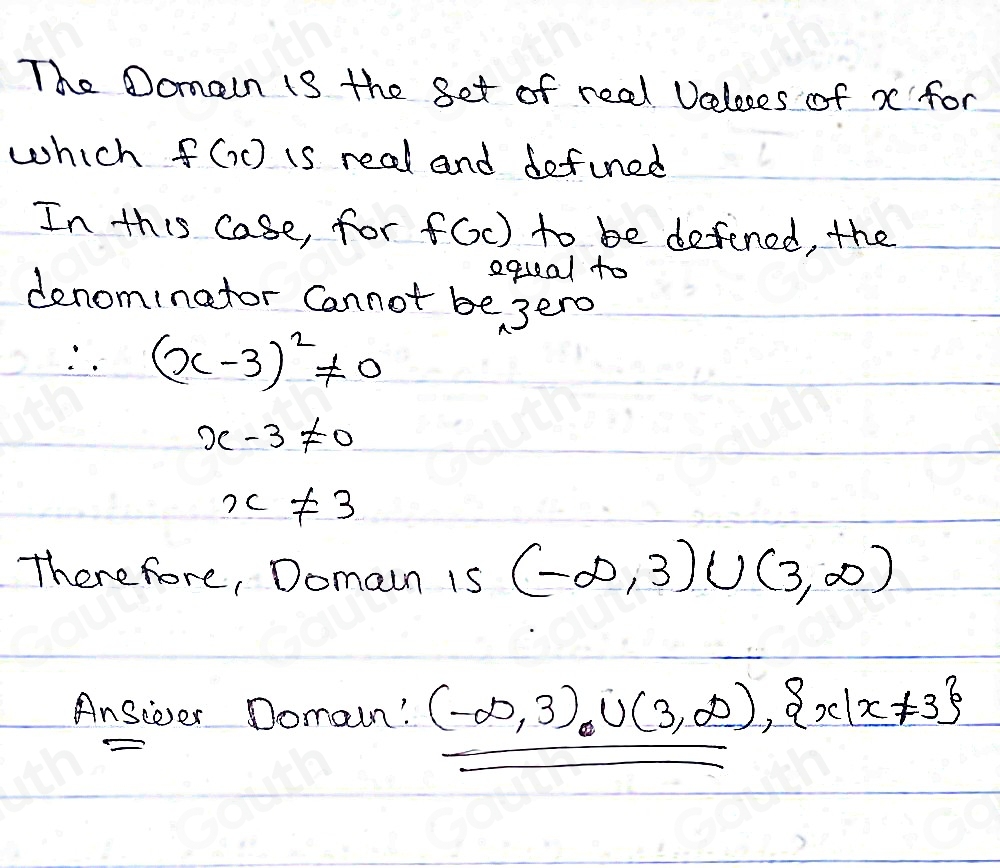 The Domain is the set of real values of x for
which f(x) is real and defined
In this case, for f(x) to be defined, the
equal to
denominator cannot be ^ zero
∴ (x-3)² ≠ 0
x-3 ≠ 0
x ≠ 3
Therefore, Domain is (-∞, 3) ∪ (3, ∞)
Answer Domain: (-∞, 3) ∪ (3, ∞), {x|x ≠ 3}